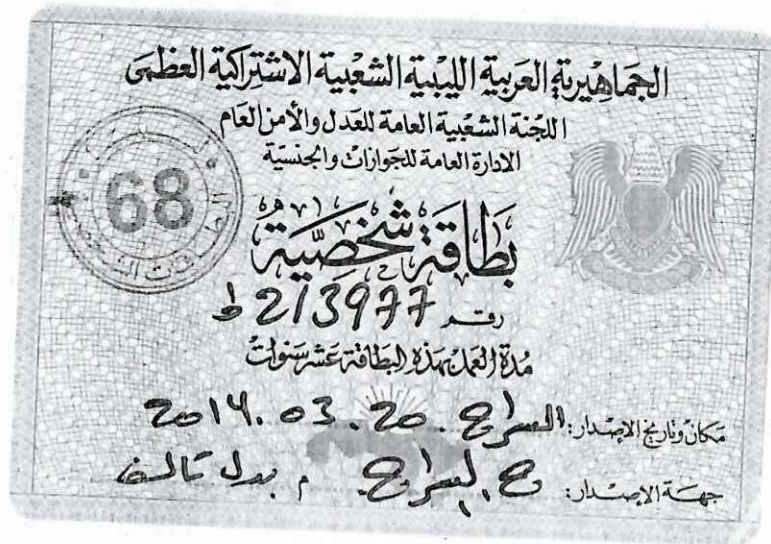 الجماهيرية العربية الليبية الشعبية الاشتراكية العظمى
اللجنة الشعبية العامة للعدل والأمن العام
الادارة العامة للجوازات والجنسية
68
بطاقة شخصية
رقم 213977 ط
مدة العمل بهذه البطاقة عشر سنوات
مكان وتاريخ الإصدار: السراج. 20. 03. 2014
جهة الإصدار: ج. السراج. م بدل تالف